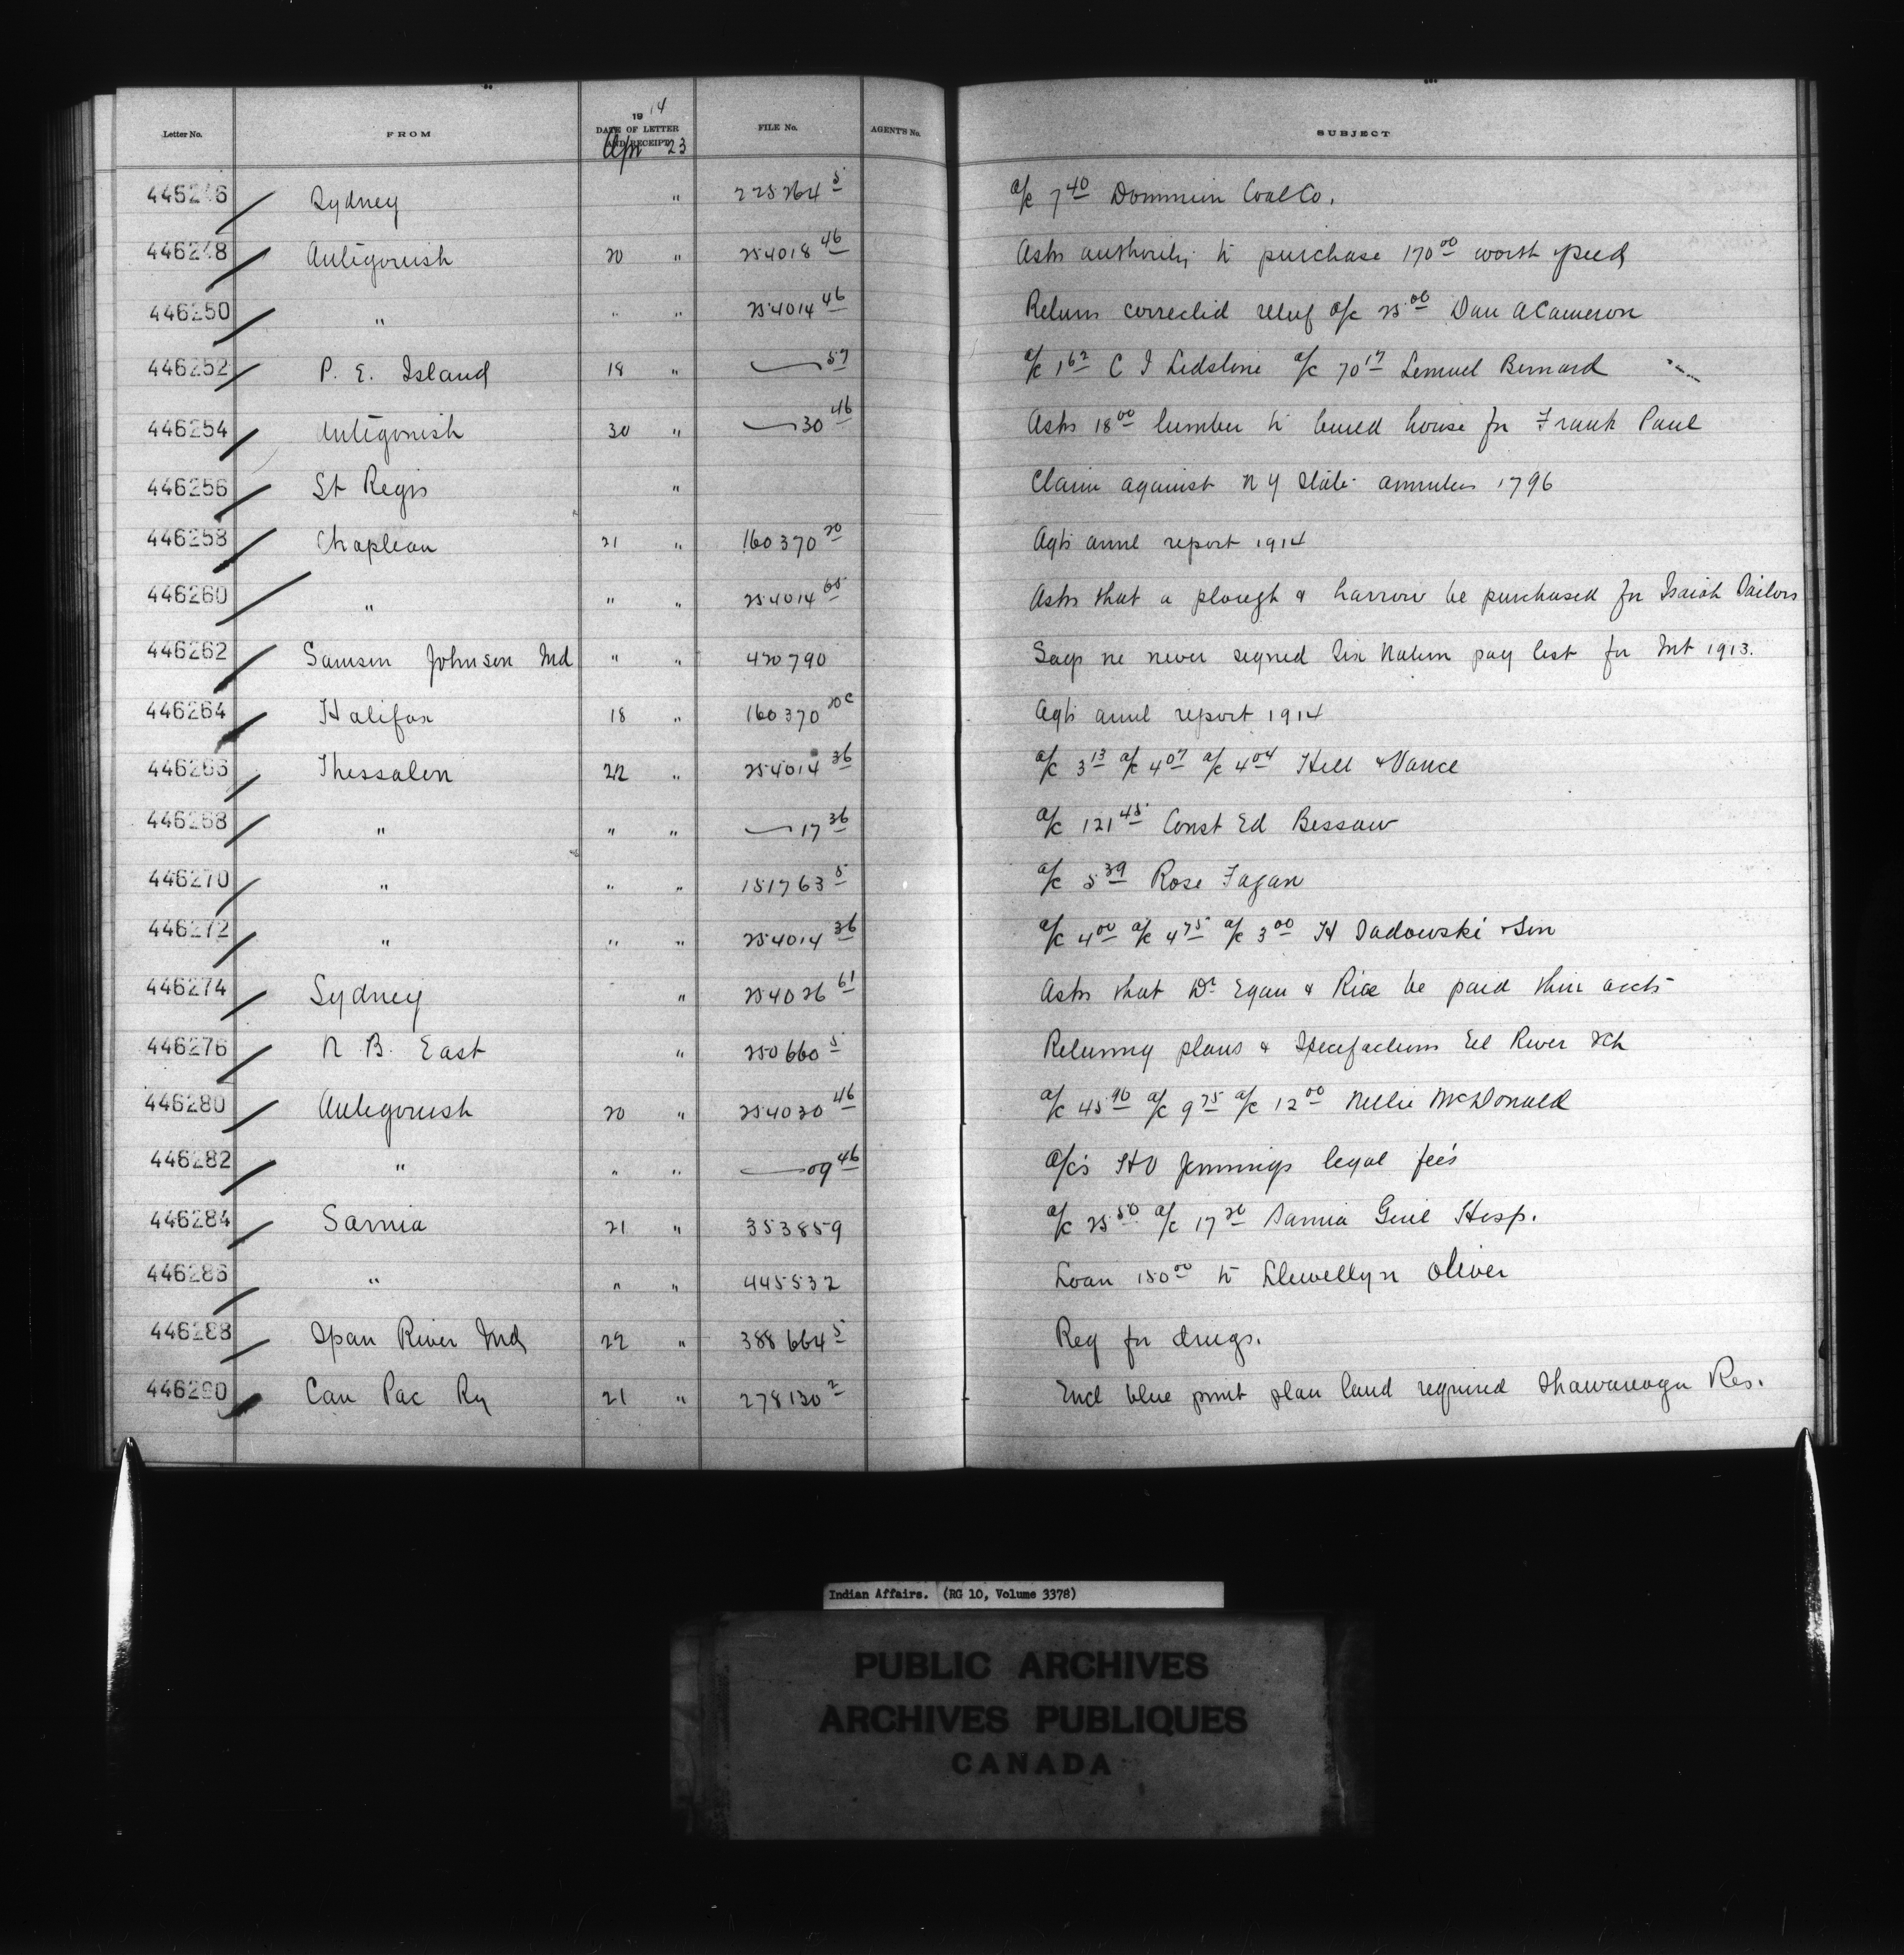 Letter No. FROM 1914 DATE OF LETTER AND RECEIPT FILE No. AGENT'S No. SUBJECT
Apr 23
446246 Sydney " 225264 5 a/c 7 40 Dominion Coal Co.
446248 Antigonish 20 " 254018 46 Asks authority to purchase 170 00 worth seed
446250 " " " 254014 46 Returns corrected relief a/c 25 00 Dan A Cameron
446252 P. E. Island 18 " — 57 a/c 1 62 C I a/c 70 17 Lemuel Bernard
446254 Antigonish 30 " — 30 46 Asks 18 00 lumber to build house for Frank Paul
446256 St Regis " Claim against N Y State annuities 1796
446258 Chapleau 21 " 160370 20 Agts annl report 1914
446260 " " " 254014 65 Asks that a plough & harrow be purchased for Isaiah
446262 Samson Johnson Ind " " 420790 Says he never signed Six Nation pay list for Int 1913.
446264 Halifax 18 " 160370 20c Agts annl report 1914
446266 Thessalon 22 " 254014 36 a/c 3 13 a/c 4 07 a/c 4 04 Hill & Vance
446268 " " " — 17 36 a/c 121 45 Const Ed Bessaw
446270 " " " 151763 5 a/c 5 39 Rose Fagan
446272 " " " 254014 36 a/c 4 00 a/c 4 75 a/c 3 00 H Sadowski & Son
446274 Sydney " 254026 61 Asks that Dr Egan & Rice be paid their accts
446276 N. B. East " 250660 5 Returning plans & Specifactions Eel River Sch
446280 Antigonish 20 " 254030 46 a/c 45 90 a/c 9 75 a/c 12 00 Nellie McDonald
446282 " " " — 09 46 a/cs Jennings legal fees
446284 Sarnia 21 " 353859 a/c 25 50 a/c 17 20 Sarnia Genl Hosp.
446286 " " " 445532 Loan 150 00 to Llewellyn Oliver
446288 Span River Ind 22 " 388664 5 Req for drugs.
446290 Can Pac Ry 21 " 278130 2 Encl blue print plan land required Shawanaga Res.
Indian Affairs. (RG 10, Volume 3378)
PUBLIC ARCHIVES
ARCHIVES PUBLIQUES
CANADA